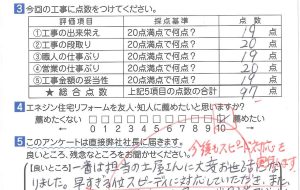 3 今回の工事に点数をつけてください。
評価項目 採点基準 点数
①工事の出来栄え 20点満点で何点? 19 点
②工事の段取り 20点満点で何点? 20 点
③職人の仕事ぶり 20点満点で何点? 19 点
④営業の仕事ぶり 20点満点で何点? 20 点
⑤工事金額の妥当性 20点満点で何点? 19 点
★総合得点 上記5項目の点数の合計 97 点
4 エネジン住宅リフォームを友人・知人に薦めたいと思いますか?
薦めたくない 薦めたい
0 1 2 3 4 5 6 7 8 9 10
5 このアンケートは直接弊社社長に届きます。
良いところ、残念なところをお聞かせください。
良いところ 一番は担当の土屋さんに大変お世話になり
ました。早すぎる位スピーディに対応していただき、また、